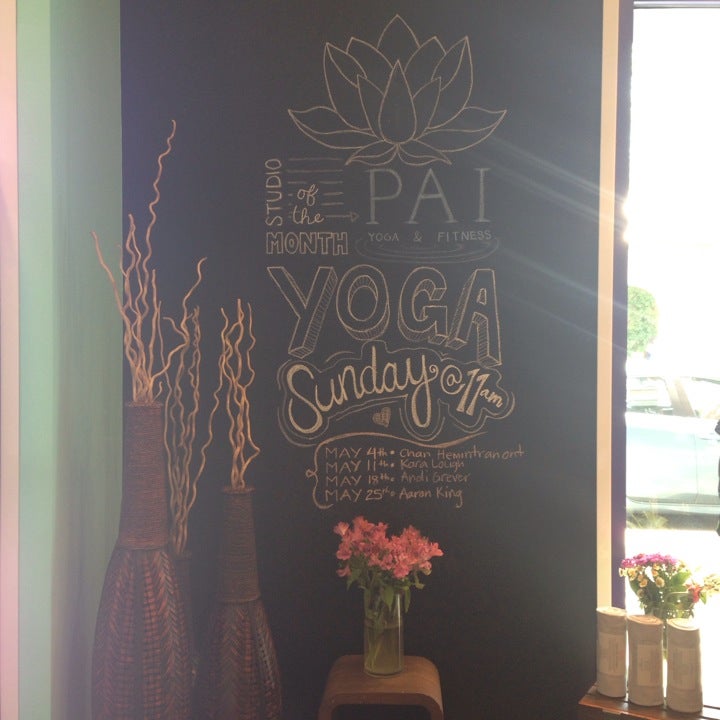 STUDIO
of
the
MONTH
PAI
YOGA & FITNESS
YOGA
Sunday @ 11am
MAY 4th • Chan Hemintranont
MAY 11th • Kara Lough
MAY 18th • Andi Grever
MAY 25th • Aaron King